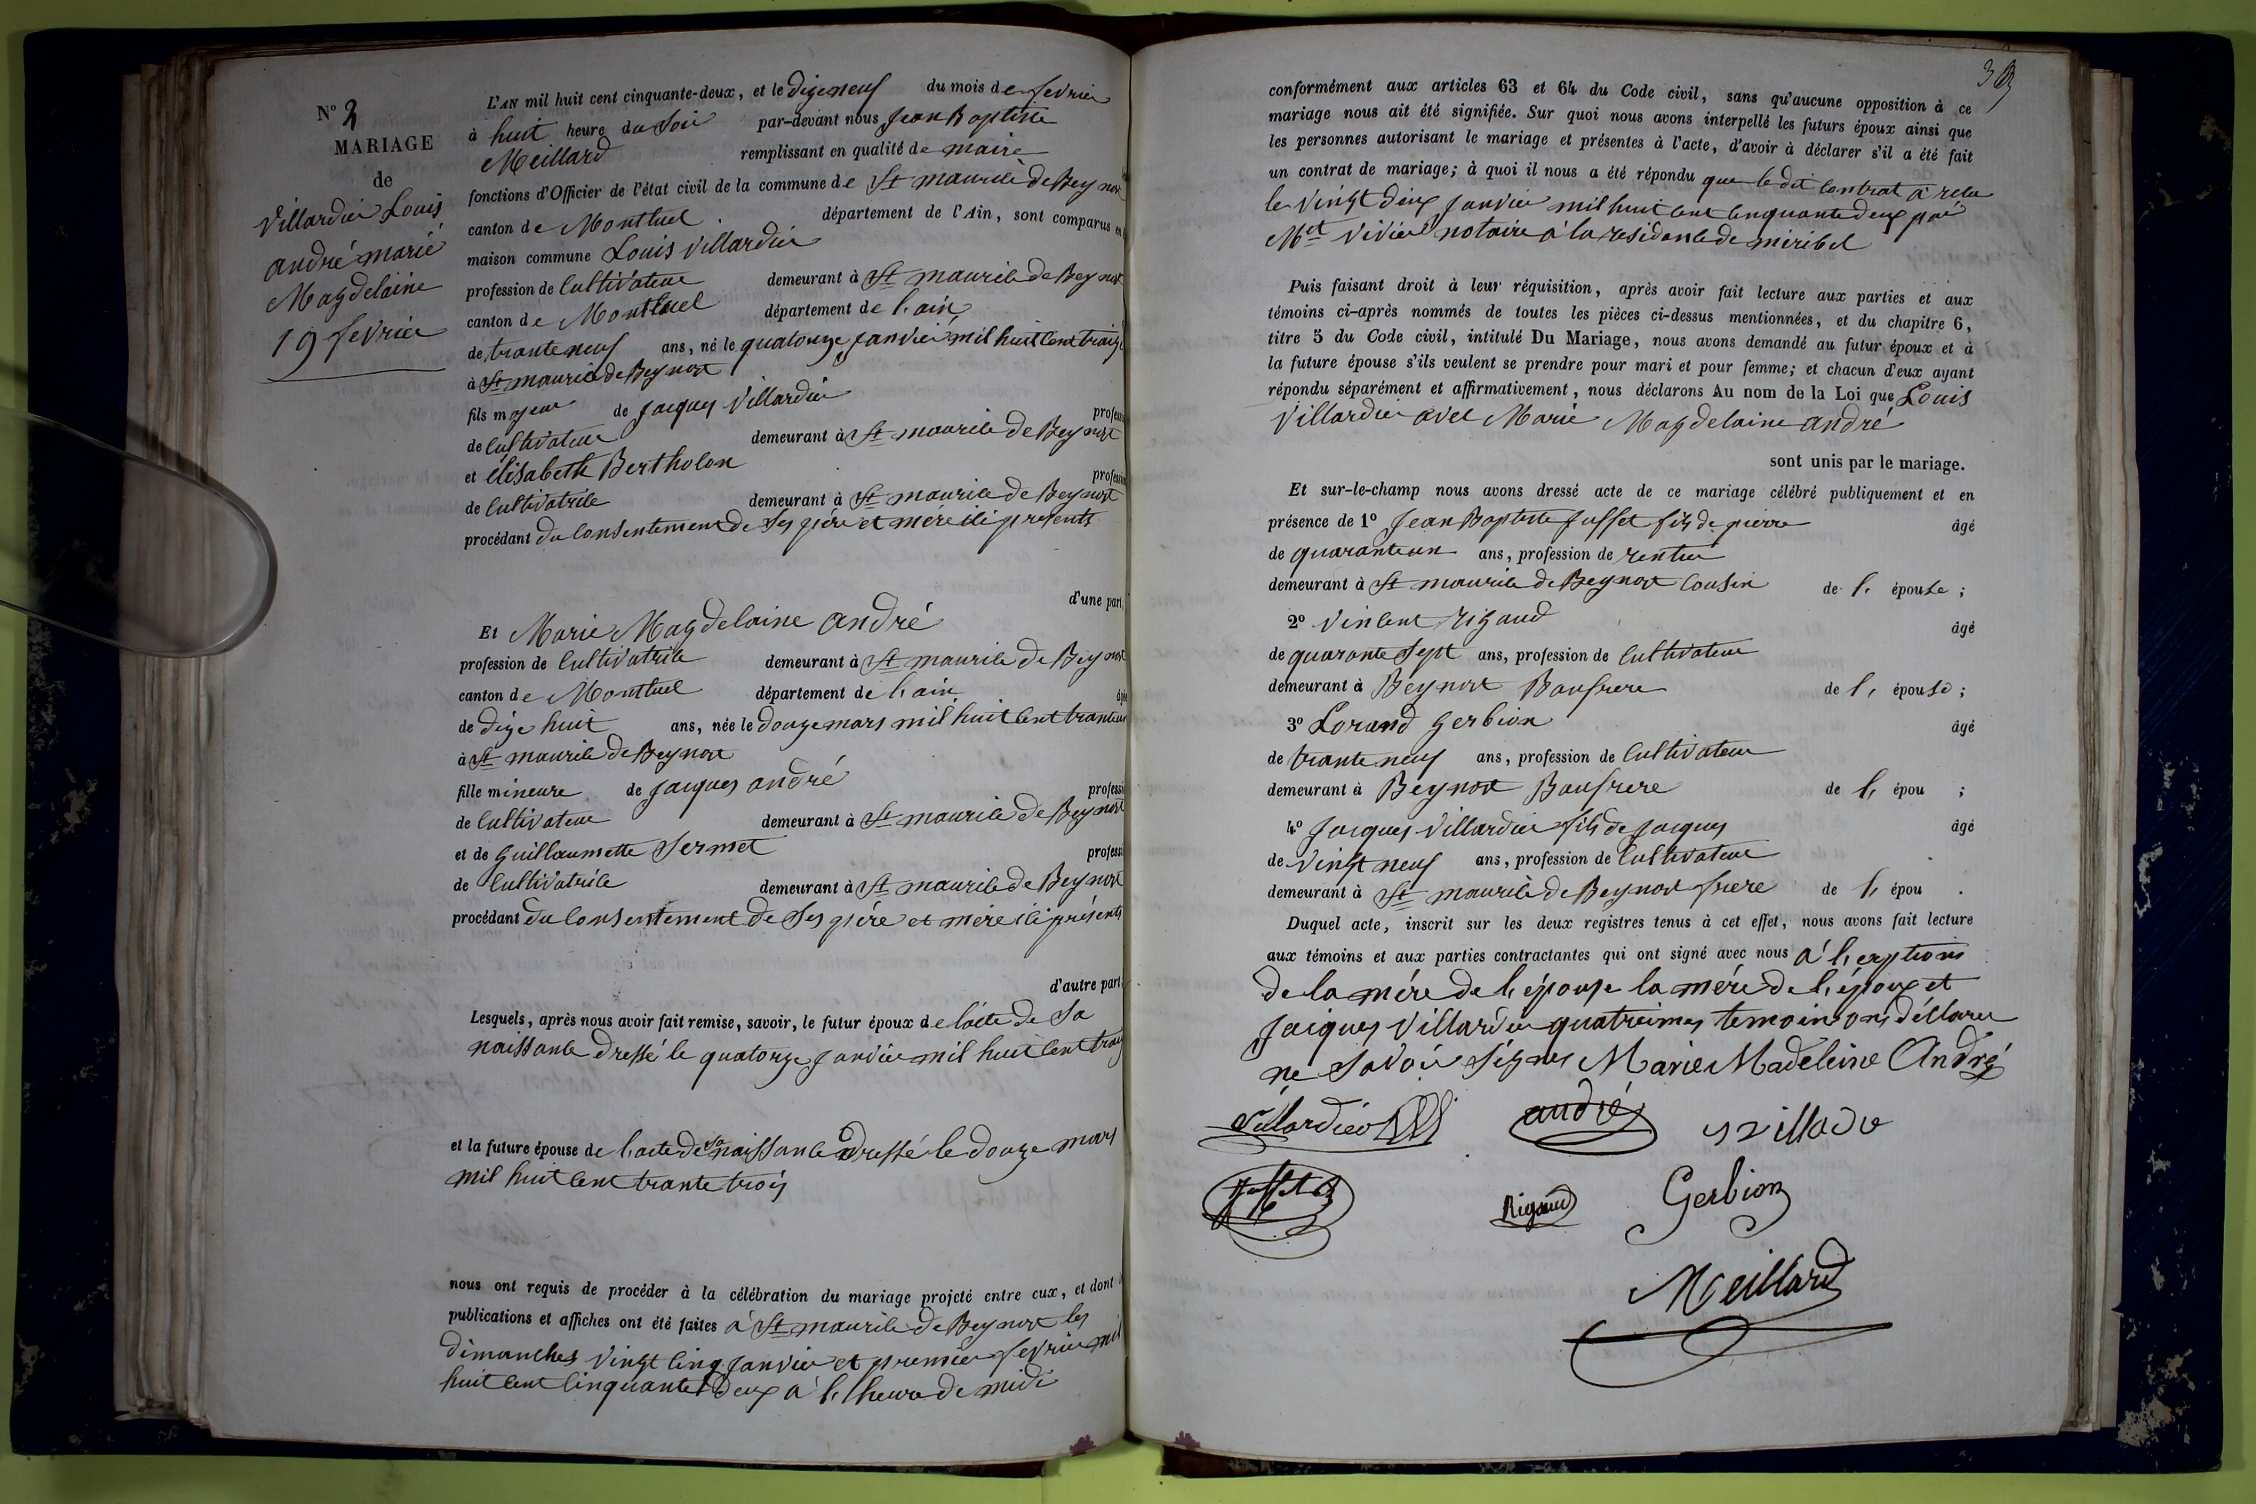 N° 2
MARIAGE
de
Villardier Louis
andré marie
Magdelaine
19 fevrier
L'AN mil huit cent cinquante-deux, et le dizeneuf du mois de fevrier
à huit heure du Soir par-devant nous Jean Baptiste
Meillard remplissant en qualité de maire
fonctions d'Officier de l'état civil de la commune de St maurice de Beynost
canton de Montluel département de l'Ain, sont comparus en
maison commune Louis Villardier
profession de Cultivateur demeurant à St maurice de Beynost
canton de Montluel département de l'ain
de trante neuf ans, né le quatorze janvier mil huit cent traize
à St maurice de Beynost
fils majeur de Jacques Villardier profession
de Cultivateur demeurant à St maurice de Beynost
et élisabeth Bertholon profession
de Cultivatrice demeurant à St maurice de Beynost
procédant du Consentement de Ses père et mère ici presents
d'une part,
Et Marie Magdelaine andré
profession de Cultivatrice demeurant à St maurice de Beynost
canton de Montluel département de l'ain âgée
de dize huit ans, née le douze mars mil huit cent trante
à St maurice de Beynost
fille mineure de Jacques andré profession
de Cultivateur demeurant à St maurice de Beynost
et de Guillaumette Sermet profession
de Cultivatrice demeurant à St maurice de Beynost
procédant du Consentement de Ses père et mère ici présents
d'autre part
Lesquels, après nous avoir fait remise, savoir, le futur époux de l'acte de Sa
naissance dressé le quatorze janvier mil huit cent traize
et la future épouse de l'acte de sa naissance dressé le douze mars
mil huit cent trante trois
nous ont requis de procéder à la célébration du mariage projeté entre eux, et dont
publications et affiches ont été faites à St maurice de Beynost les
dimanches vingt cinq janvier et premier fevrier mil
huit cent cinquante deux à l'heure de midi
3
conformément aux articles 63 et 64 du Code civil, sans qu'aucune opposition à ce
mariage nous ait été signifiée. Sur quoi nous avons interpellé les futurs époux ainsi que
les personnes autorisant le mariage et présentes à l'acte, d'avoir à déclarer s'il a été fait
un contrat de mariage; à quoi il nous a été répondu que le dit Contrat à retu
le vingt deux janvier mil huit cent cinquante deux par
Met Vivier notaire à la residence de miribel
Puis faisant droit à leur réquisition, après avoir fait lecture aux parties et aux
témoins ci-après nommés de toutes les pièces ci-dessus mentionnées, et du chapitre 6,
titre 5 du Code civil, intitulé Du Mariage, nous avons demandé au futur époux et à
la future épouse s'ils veulent se prendre pour mari et pour femme; et chacun d'eux ayant
répondu séparément et affirmativement, nous déclarons Au nom de la Loi que Louis
Villardier avec Marie Magdelaine andré
sont unis par le mariage.
Et sur-le-champ nous avons dressé acte de ce mariage célébré publiquement et en
présence de 1° Jean Baptiste Juffet fils de pierre âgé
de quaranteun ans, profession de rentier
demeurant à St maurice de Beynost Cousin de l, épouse;
2° Vincent Rigaud âgé
de quarante Sept ans, profession de Cultivateur
demeurant à Beynost Baufrere de l, épouse;
3° Lorand Gerbion âgé
de trante neuf ans, profession de Cultivateur
demeurant à Beynost Baufrere de l, épou ;
4° Jacques Villardier fils de Jacques âgé
de vingt neuf ans, profession de Cultivateur
demeurant à St maurice de Beynost frere de l, épou .
Duquel acte, inscrit sur les deux registres tenus à cet effet, nous avons fait lecture
aux témoins et aux parties contractantes qui ont signé avec nous à l, exptions
de la mére de l, épouse la mére de l, époux et
Jacques Villardier quatreimes temoin ons déllarer
ne Savoir Signer Marie Madeleine André
Villardier andré Villade
Juffet Rigaud Gerbion
Meillard